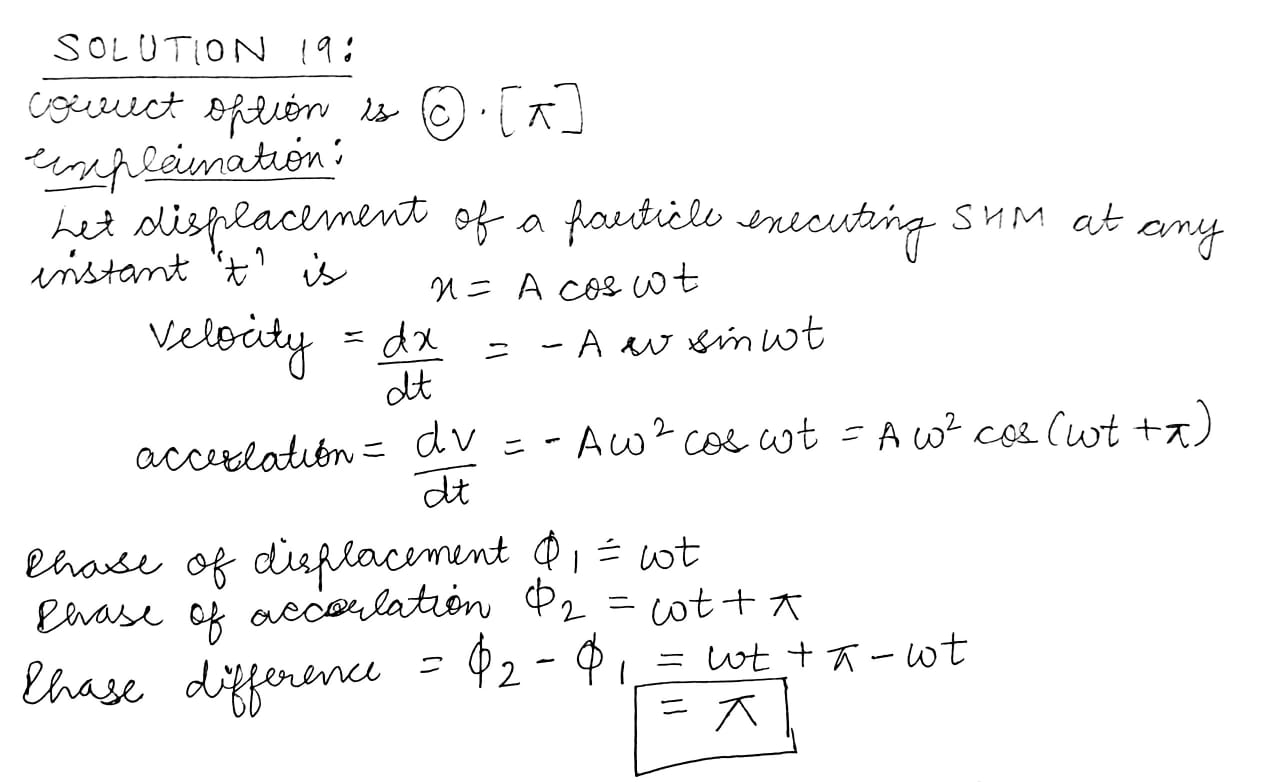 SOLUTION 19:
correct option is (c) . [π]
explaination:
Let displacement of a particle executing SHM at any
instant "t" is x = A cos ωt
Velocity = dx/dt = - A ω sin ωt
accerlation = dv/dt = - Aω² cos ωt = A ω² cos (ωt + π)
Phase of displacement Φ₁ = ωt
Phase of accerlation Φ₂ = ωt + π
Phase difference = Φ₂ - Φ₁ = ωt + π - ωt
= π